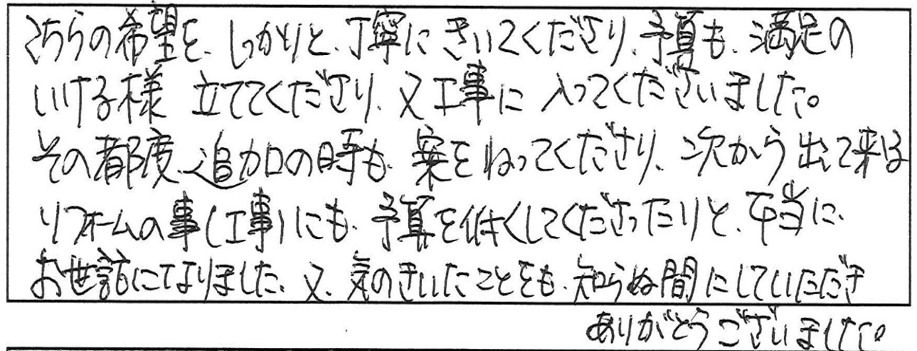 こちらの希望を、しっかりと、丁寧にきいてくださり、予算も、満足の
いける様 立ててくださり、又工事に 入ってくださいました。
その都度、追加の時も、案をねってくださり、次から出て来る
リフォームの事(工事)にも、予算を低くしてくださったりと、本当に、
お世話になりました、又、気のきいたことをも、知らぬ間にしていただき
ありがとうございました。